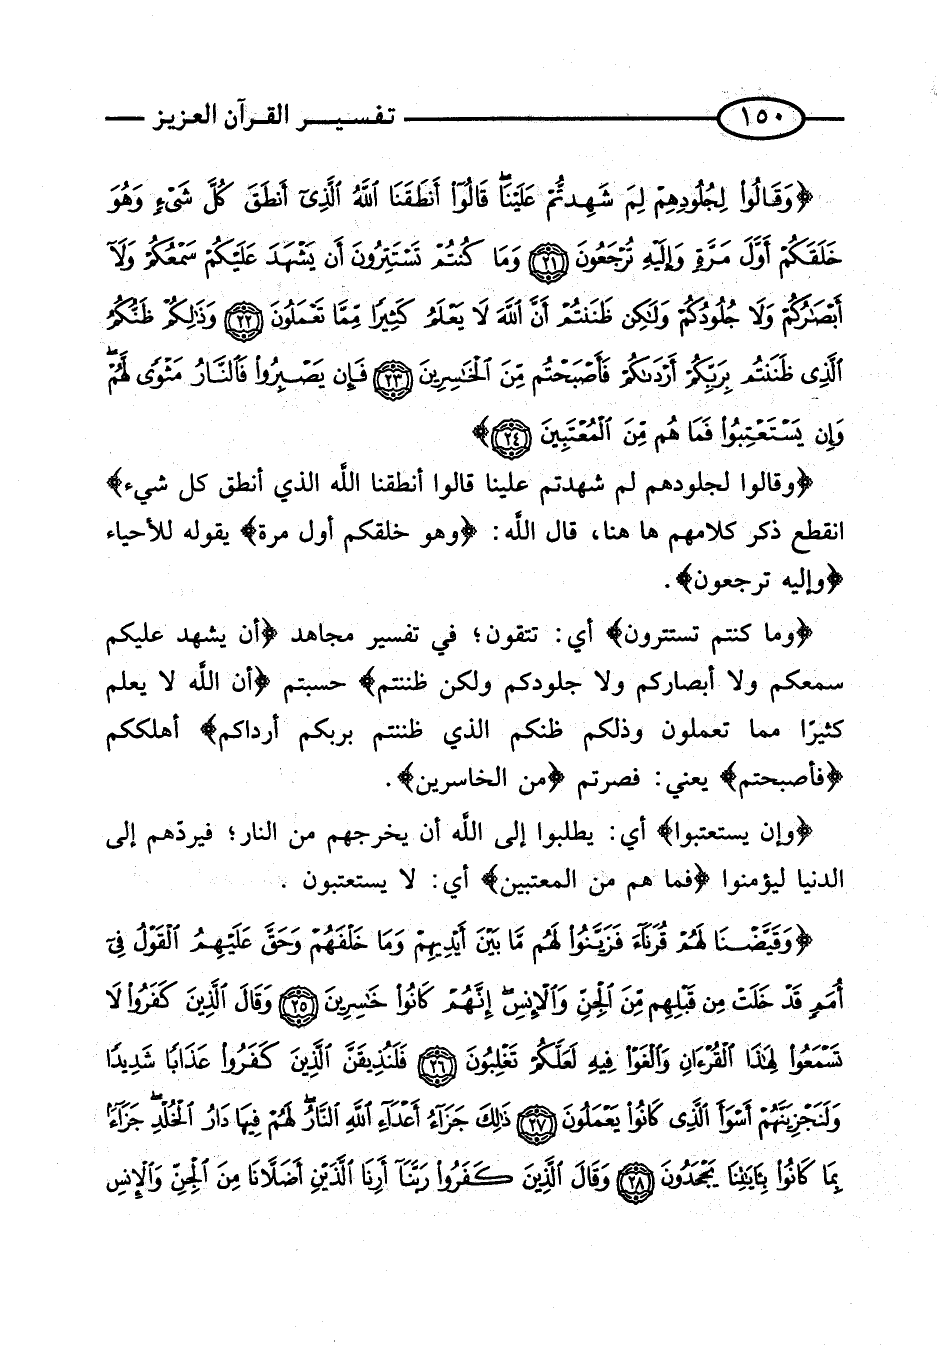 ١٥٠ تفسير القرآن العزيز
﴿وَقَالُوا۟ لِجُلُودِهِمْ لِمَ شَهِدتُّمْ عَلَيْنَا ۖ قَالُوٓا۟ أَنطَقَنَا ٱللَّهُ ٱلَّذِىٓ أَنطَقَ كُلَّ شَىْءٍ وَهُوَ
خَلَقَكُمْ أَوَّلَ مَرَّةٍ وَإِلَيْهِ تُرْجَعُونَ ٢١ وَمَا كُنتُمْ تَسْتَتِرُونَ أَن يَشْهَدَ عَلَيْكُمْ سَمْعُكُمْ وَلَآ
أَبْصَٰرُكُمْ وَلَا جُلُودُكُمْ وَلَٰكِن ظَنَنتُمْ أَنَّ ٱللَّهَ لَا يَعْلَمُ كَثِيرًا مِّمَّا تَعْمَلُونَ ٢٢ وَذَٰلِكُمْ ظَنُّكُمُ
ٱلَّذِى ظَنَنتُم بِرَبِّكُمْ أَرْدَىٰكُمْ فَأَصْبَحْتُم مِّنَ ٱلْخَٰسِرِينَ ٢٣ فَإِن يَصْبِرُوا۟ فَٱلنَّارُ مَثْوًى لَّهُمْ ۖ
وَإِن يَسْتَعْتِبُوا۟ فَمَا هُم مِّنَ ٱلْمُعْتَبِينَ ٢٤﴾
﴿وقالوا لجلودهم لم شهدتم علينا قالوا أنطقنا اللَّه الذي أنطق كل شيء﴾
انقطع ذكر كلامهم ها هنا، قال اللَّه: ﴿وهو خلقكم أول مرة﴾ يقوله للأحياء
﴿وإليه ترجعون﴾.
﴿وما كنتم تستترون﴾ أي: تتقون؛ في تفسير مجاهد ﴿أن يشهد عليكم
سمعكم ولا أبصاركم ولا جلودكم ولكن ظننتم﴾ حسبتم ﴿أن اللَّه لا يعلم
كثيرًا مما تعملون وذلكم ظنكم الذي ظننتم بربكم أرداكم﴾ أهلككم
﴿فأصبحتم﴾ يعني: فصرتم ﴿من الخاسرين﴾.
﴿وإن يستعتبوا﴾ أي: يطلبوا إلى اللَّه أن يخرجهم من النار؛ فيردّهم إلى
الدنيا ليؤمنوا ﴿فما هم من المعتبين﴾ أي: لا يستعتبون .
﴿وَقَيَّضْنَا لَهُمْ قُرَنَآءَ فَزَيَّنُوا۟ لَهُم مَّا بَيْنَ أَيْدِيهِمْ وَمَا خَلْفَهُمْ وَحَقَّ عَلَيْهِمُ ٱلْقَوْلُ فِىٓ
أُمَمٍ قَدْ خَلَتْ مِن قَبْلِهِم مِّنَ ٱلْجِنِّ وَٱلْإِنسِ ۖ إِنَّهُمْ كَانُوا۟ خَٰسِرِينَ ٢٥ وَقَالَ ٱلَّذِينَ كَفَرُوا۟ لَا
تَسْمَعُوا۟ لِهَٰذَا ٱلْقُرْءَانِ وَٱلْغَوْا۟ فِيهِ لَعَلَّكُمْ تَغْلِبُونَ ٢٦ فَلَنُذِيقَنَّ ٱلَّذِينَ كَفَرُوا۟ عَذَابًا شَدِيدًا
وَلَنَجْزِيَنَّهُمْ أَسْوَأَ ٱلَّذِى كَانُوا۟ يَعْمَلُونَ ٢٧ ذَٰلِكَ جَزَآءُ أَعْدَآءِ ٱللَّهِ ٱلنَّارُ ۖ لَهُمْ فِيهَا دَارُ ٱلْخُلْدِ ۖ جَزَآءًۢ
بِمَا كَانُوا۟ بِـَٔايَٰتِنَا يَجْحَدُونَ ٢٨ وَقَالَ ٱلَّذِينَ كَفَرُوا۟ رَبَّنَآ أَرِنَا ٱلَّذَيْنِ أَضَلَّانَا مِنَ ٱلْجِنِّ وَٱلْإِنسِ